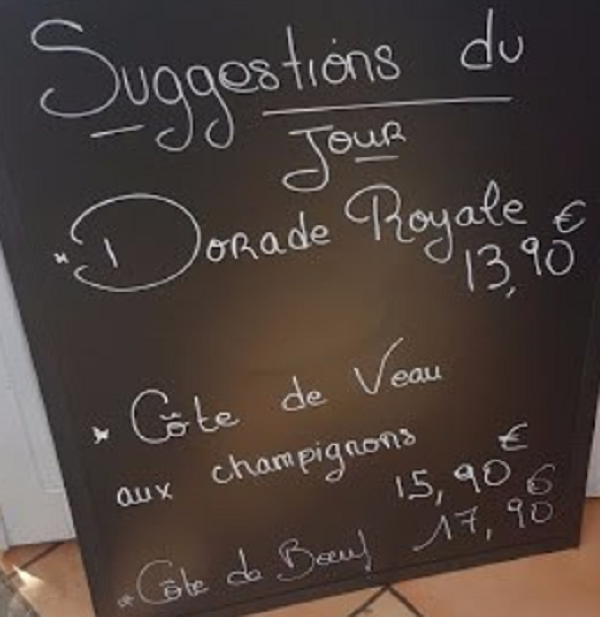 Suggestions du
Jour
* Dorade Royale €
13,90
* Côte de Veau
aux champignons €
15,90
* Côte de Boeuf 17,90 €